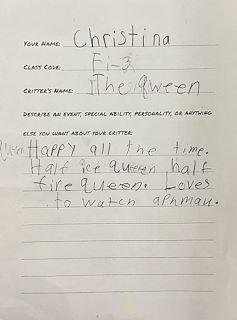 YOUR NAME: Christina
CLASS CODE: Fi-3
CRITTER'S NAME: The Qween
DESCRIBE AN EVENT, SPECIAL ABILITY, PERSONALITY, OR ANYTHING
ELSE YOU WANT ABOUT YOUR CRITTER:
Happy all the time.
Half ice queen half
fire queen. Loves
to watch aphmau.